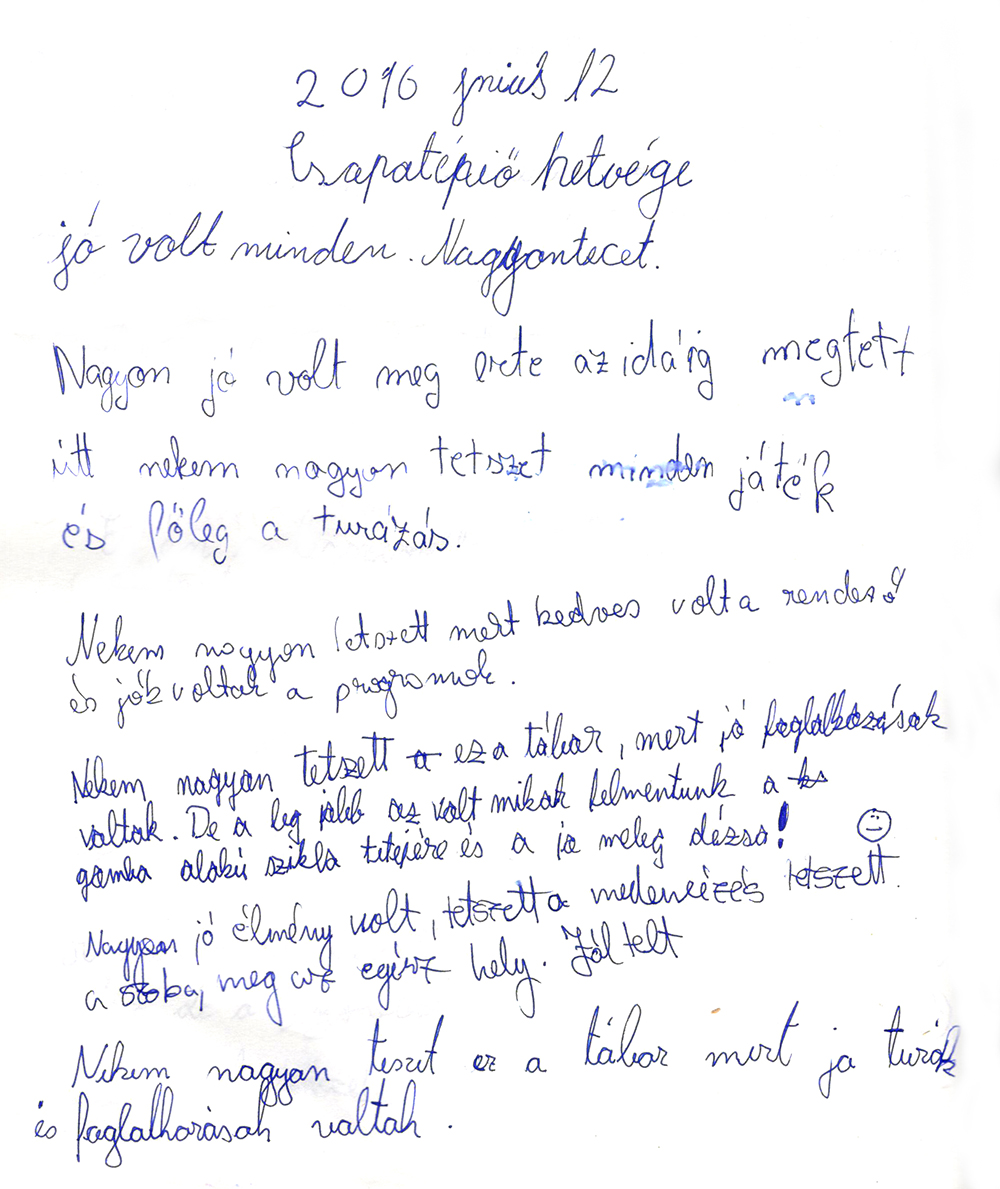 2016 jniuś 12
Csapatépiő hetvége
jó volt minden. Nagyontecet.
Nagyon jó volt meg erte azidáig megtett
itt nekem nagyon tetszet minden játék
és főleg a turázás.
Nekem nagyon tetszett mert kedves volt a rendes
és jók voltak a programok.
Nekem nagyan tetszett a ez a tábar, mert jó foglalkozások
valtak. De a leg jobb az valt mikak felmentunk a
gamba alakú szikla tetejére és a jó meleg dézsa!
Nagyon jó élmény volt, tetszett a medencézés tetszett.
a szoba, meg az egész hely. Jól telt
Nekem nagyan teszet ez a tábar mert ja turák
és faglalkorásak valtak.